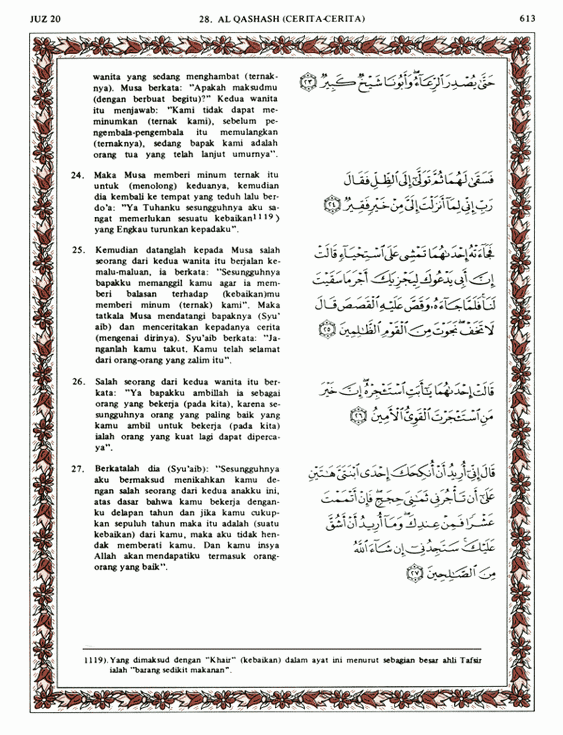 JUZ 20
28. AL QASHASH (CERITA-CERITA)
613
wanita yang sedang menghambat (ternak-
nya). Musa berkata: "Apakah maksudmu
(dengan berbuat begitu)?" Kedua wanita
itu menjawab: "Kami tidak dapat me-
minumkan (ternak kami), sebelum pe-
ngembala-pengembala itu memulangkan
(ternaknya), sedang bapak kami adalah
orang tua yang telah lanjut umurnya".
حَتَّىٰ يُصْدِرَ الرِّعَاءُ ۖ وَأَبُونَا شَيْخٌ كَبِيرٌ ﴿٢٣﴾
24. Maka Musa memberi minum ternak itu
untuk (menolong) keduanya, kemudian
dia kembali ke tempat yang teduh lalu ber-
do'a: "Ya Tuhanku sesungguhnya aku sa-
ngat memerlukan sesuatu kebaikan1119)
yang Engkau turunkan kepadaku".
فَسَقَىٰ لَهُمَا ثُمَّ تَوَلَّىٰ إِلَى الظِّلِّ فَقَالَ
رَبِّ إِنِّي لِمَا أَنْزَلْتَ إِلَيَّ مِنْ خَيْرٍ فَقِيرٌ ﴿٢٤﴾
25. Kemudian datanglah kepada Musa salah
seorang dari kedua wanita itu berjalan ke-
malu-maluan, ia berkata: "Sesungguhnya
bapakku memanggil kamu agar ia mem-
beri balasan terhadap (kebaikan)mu
memberi minum (ternak) kami". Maka
tatkala Musa mendatangi bapaknya (Syu'
aib) dan menceritakan kepadanya cerita
(mengenai dirinya). Syu'aib berkata: "Ja-
nganlah kamu takut. Kamu telah selamat
dari orang-orang yang zalim itu".
فَجَاءَتْهُ إِحْدَاهُمَا تَمْشِي عَلَى اسْتِحْيَاءٍ قَالَتْ
إِنَّ أَبِي يَدْعُوكَ لِيَجْزِيَكَ أَجْرَ مَا سَقَيْتَ
لَنَا ۚ فَلَمَّا جَاءَهُ وَقَصَّ عَلَيْهِ الْقَصَصَ قَالَ
لَا تَخَفْ ۖ نَجَوْتَ مِنَ الْقَوْمِ الظَّالِمِينَ ﴿٢٥﴾
26. Salah seorang dari kedua wanita itu ber-
kata: "Ya bapakku ambillah ia sebagai
orang yang bekerja (pada kita), karena se-
sungguhnya orang yang paling baik yang
kamu ambil untuk bekerja (pada kita)
ialah orang yang kuat lagi dapat diperca-
ya".
قَالَتْ إِحْدَاهُمَا يَا أَبَتِ اسْتَأْجِرْهُ ۖ إِنَّ خَيْرَ
مَنِ اسْتَأْجَرْتَ الْقَوِيُّ الْأَمِينُ ﴿٢٦﴾
27. Berkatalah dia (Syu'aib): "Sesungguhnya
aku bermaksud menikahkan kamu de-
ngan salah seorang dari kedua anakku ini,
atas dasar bahwa kamu bekerja dengan-
ku delapan tahun dan jika kamu cukup-
kan sepuluh tahun maka itu adalah (suatu
kebaikan) dari kamu, maka aku tidak hen-
dak memberati kamu. Dan kamu insya
Allah akan mendapatiku termasuk orang-
orang yang baik".
قَالَ إِنِّي أُرِيدُ أَنْ أُنْكِحَكَ إِحْدَى ابْنَتَيَّ هَاتَيْنِ
عَلَىٰ أَنْ تَأْجُرَنِي ثَمَانِيَ حِجَجٍ ۖ فَإِنْ أَتْمَمْتَ
عَشْرًا فَمِنْ عِنْدِكَ ۖ وَمَا أُرِيدُ أَنْ أَشُقَّ
عَلَيْكَ ۚ سَتَجِدُنِي إِنْ شَاءَ اللَّهُ
مِنَ الصَّالِحِينَ ﴿٢٧﴾
1119). Yang dimaksud dengan "Khair" (kebaikan) dalam ayat ini menurut sebagian besar ahli Tafsir
ialah "barang sedikit makanan".